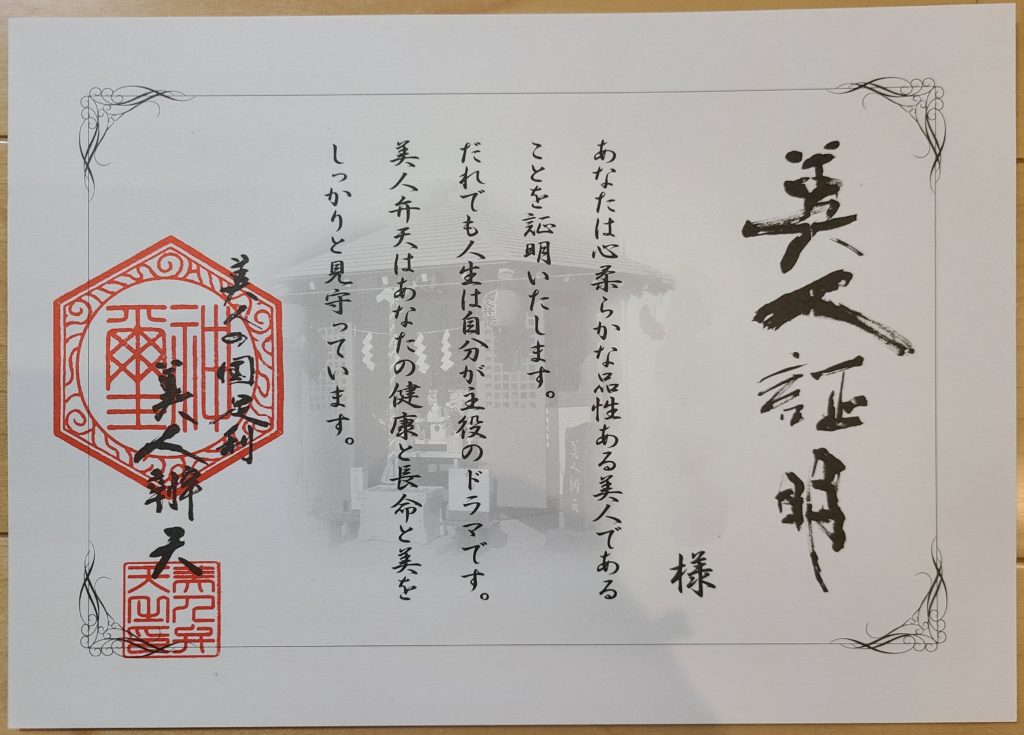 美人証明
様
あなたは心柔らかな品性ある美人である
ことを証明いたします。
だれでも人生は自分が主役のドラマです。
美人弁天はあなたの健康と長命と美を
しっかりと見守っています。
美人の国足利
美人辨天
神璽
美人弁
天之印
美人辨天